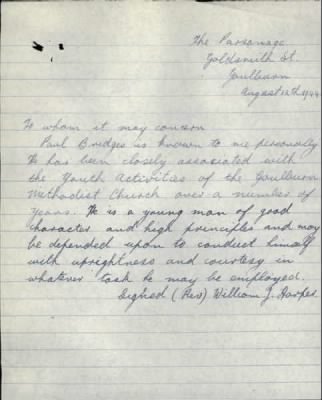 The Parsonage
Goldsmith St.
Goulburn
August 12th 1944
To whom it may concern
Paul Bridges is known to me personally
He has been closely associated with
the Youth Activities of the Goulburn
Methodist Church over a number of
years. He is a young man of good
character and high principles and may
be depended upon to conduct himself
with uprightness and courtesy in
whatever task he may be employed.
Signed (Rev) William J. Harper